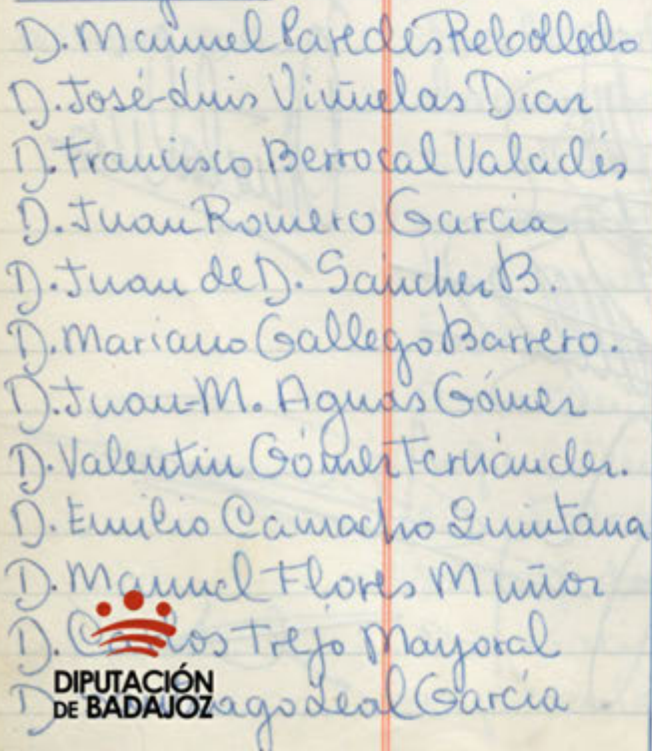 D. Manuel Paredes Rebolledo
D. José-Luis Viñuelas Diaz
D. Francisco Berrocal Valadés
D. Juan Romero Garcia
D. Juan de D. Sánchez B.
D. Mariano Gallego Barrero.
D. Juan-M. Aguas Gómez
D. Valentin Gómez Fernández.
D. Emilio Camacho Quintana
D. Manuel Flores Muñoz
D. Carlos Trejo Mayoral
D. Leal García
DIPUTACIÓN
DE BADAJOZ